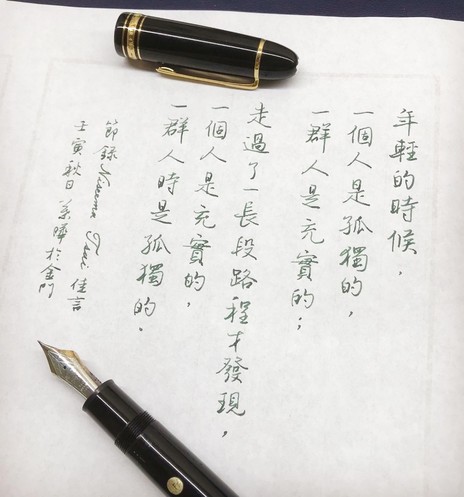 年輕的時候，
一個人是孤獨的，
一群人是充實的；
走過了一長段路程才發現，
一個人是充實的，
一群人時是孤獨的．
節錄 Tsai 佳言
壬寅秋日 於金門